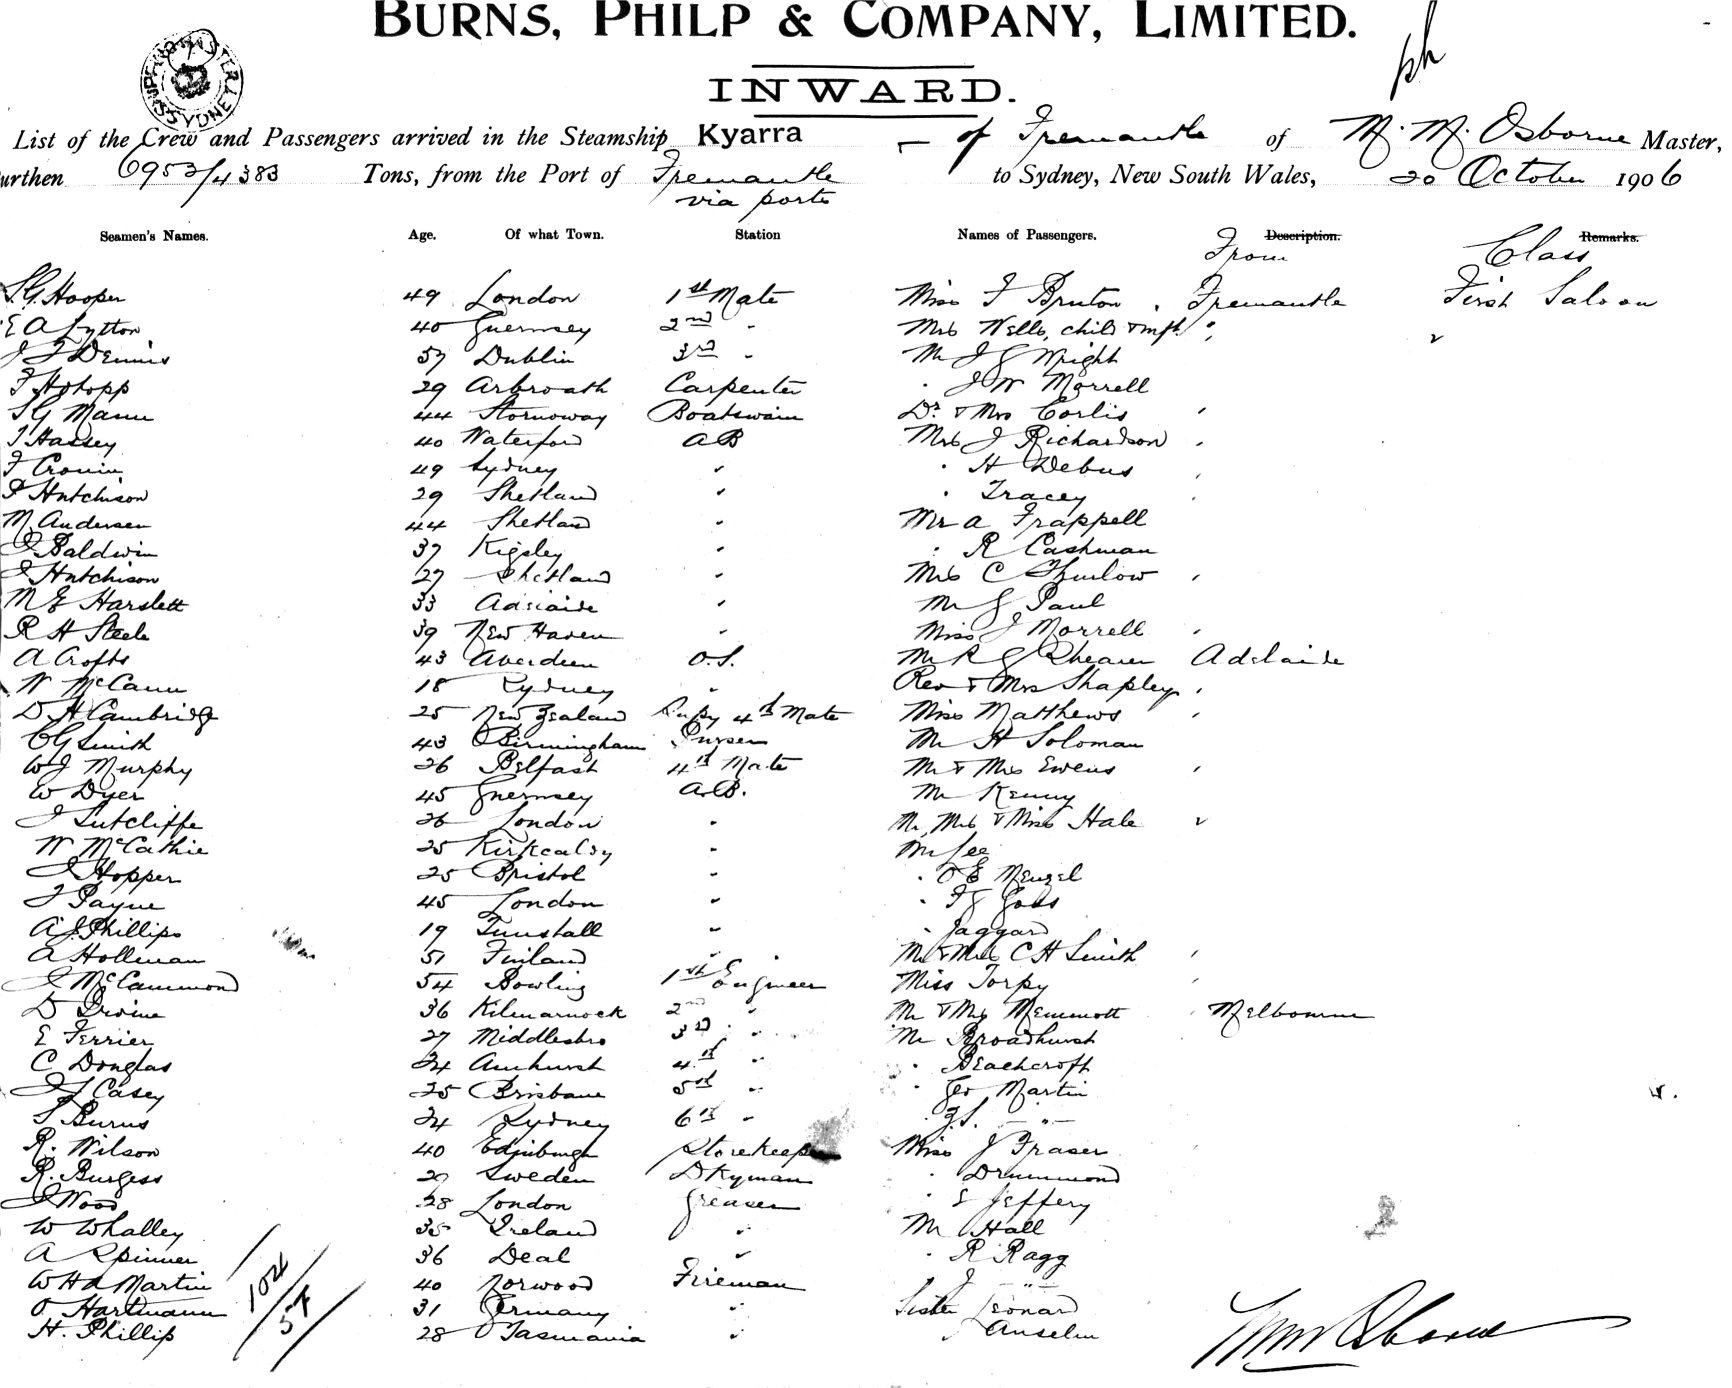 BURNS, PHILP & COMPANY, LIMITED.
ph
INWARD.
SYDNEY
List of the Crew and Passengers arrived in the Steamship Kyarra of Fremantle of M. M. Osborne Master,
urthen 6953/4383 Tons, from the Port of Fremantle to Sydney, New South Wales, 20 October 1906
via ports
Seamen's Names. Age. Of what Town. Station Names of Passengers. Description. Remarks.
From Class
S G Hooper 49 London 1st Mate Miss F Bruton . Fremantle First Saloon
E A Lytton 40 Guernsey 2nd " Mrs Wells, child & inft "
J F Dennis 57 Dublin 3rd " Mr J G Wright
F Hotopp 29 Arbroath Carpenter " J W Morrell
S G Mann 44 Stornoway Boatswain Dr & Mrs Corlis
T Hassey 40 Waterford AB Mrs J Richardson
F Cronin 49 Sydney " " H Debus
P Hutchison 29 Shetland " " Tracey
M Andersen 44 Shetland " Mr A Frappell
J Baldwin 37 Kigsley " " R Cashman
J Hutchison 27 Shetland " Mrs C Thurlow
M E Harslett 33 Adelaide " Mr G Paul
R H Steele 39 New Haven " Miss J Morrell
A Crofts 43 Aberdeen O.S. Mr R G Shearer Adelaide
W McCann 18 Sydney " Rev & Mrs Shapley
D H Cambridge 25 New Zealand Supy 4th Mate Miss Matthews
C G Smith 43 Birmingham Purser Mr H Soloman
W J Murphy 26 Belfast 4th Mate Mr & Mrs Ewens
W Dyer 45 Guernsey A.B. Mr Kenny
J Sutcliffe 26 London " Mr, Mrs & Miss Hale
W McCathie 25 Kirkcaldy " Mr Lee
J Hopper 25 Bristol " " O E Menzel
J Payne 45 London " " F G Goss
A J Phillips 19 Tunstall " " Jaggard
A Hollman 51 Finland " Mr & Mrs C H Smith
J McCammond 54 Bowling 1st Engineer Miss Torpy
D Irvine 36 Kilmarnock 2nd " Mr & Mrs Memmott Melbourne
E Ferrier 27 Middlesbro 3rd " Mr Broadhurst
C Douglas 24 Amhurst 4th " " Beachcroft
J J Casey 25 Brisbane 5th " " Geo Martin
S Burns 24 Sydney 6th " " F.S. "
R. Wilson 40 Edinburgh Storekeeper Miss J Fraser
R. Burgess 29 Sweden Dkyman " Drummond
J Wood 28 London Greaser " E Jeffery
W Whalley 35 Ireland " Mr Hall
A Spinner 36 Deal " " R Ragg
W H A Martin 40 Norwood Fireman " J "
O Hartmann 31 Germany " Sister Leonard
H. Phillip 28 Tasmania " " Anselm
104/57
Wm Osborne